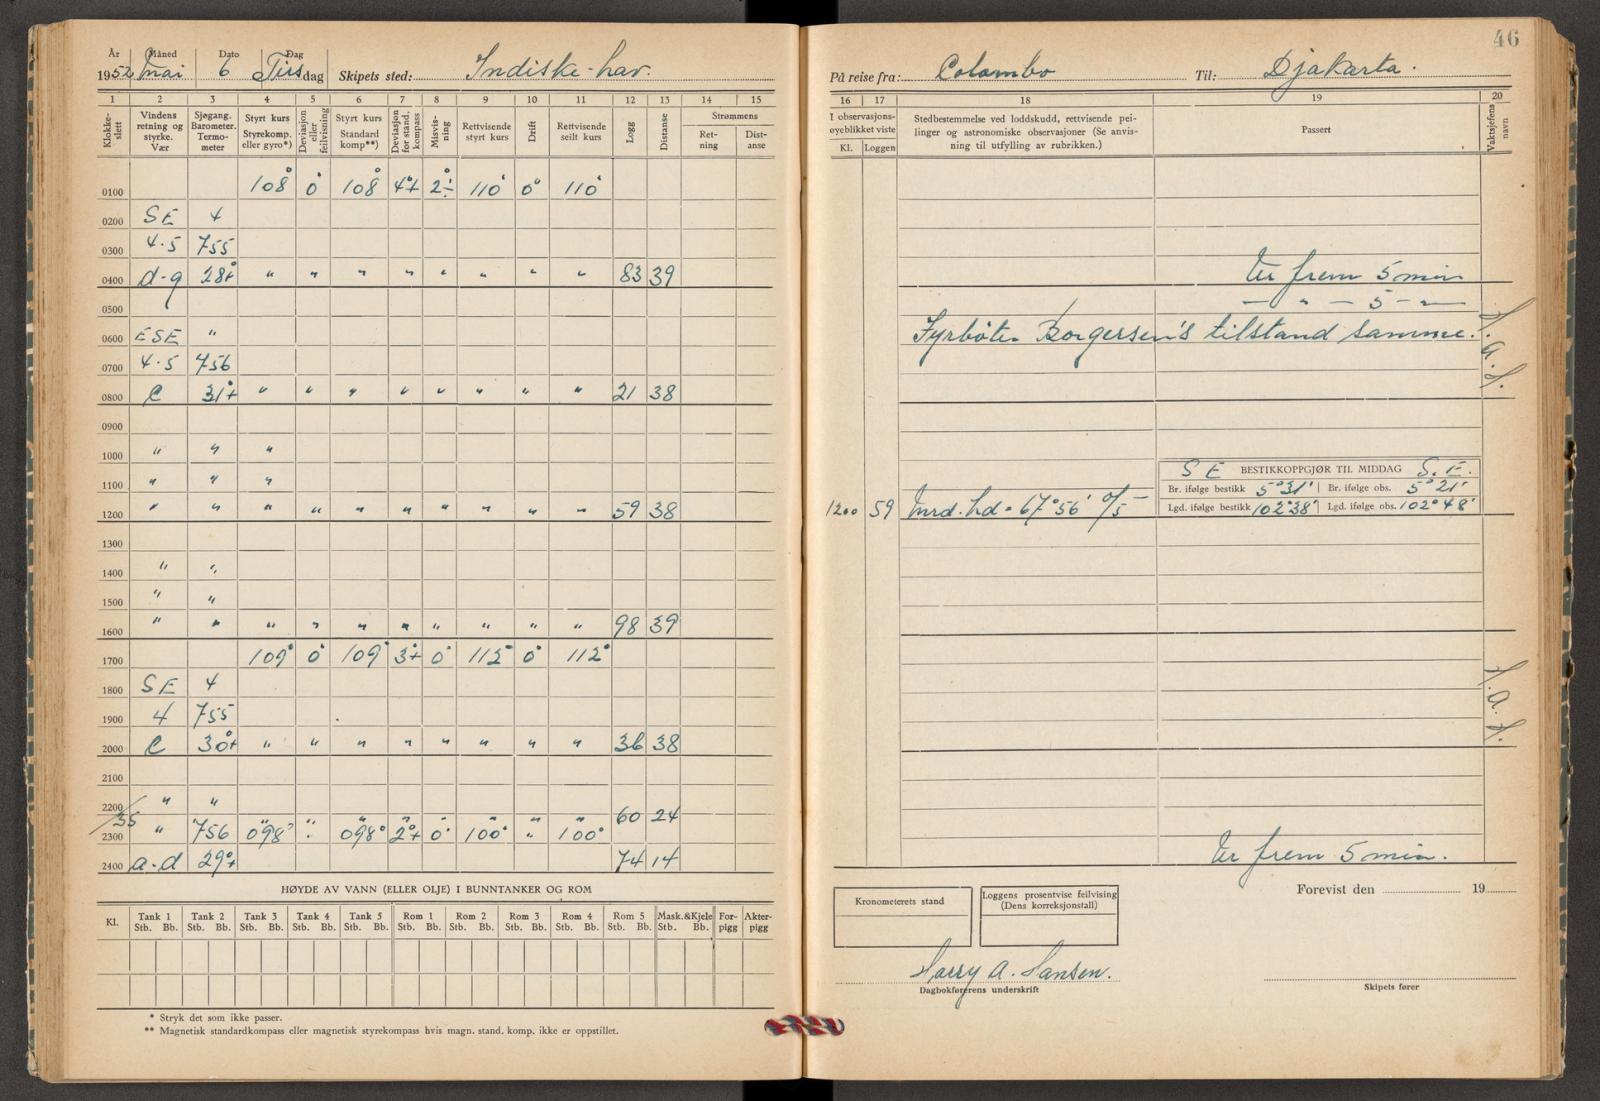 46
År Måned Dato Dag
1952 Mai 6 Tirsdag Skipets sted: Indiske-hav. På reise fra: Colombo Til: Djakarta.
1 2 3 4 5 6 7 8 9 10 11 12 13 14 15 16 17 18 19 20
Klokkeslett
Vindens retning og styrke. Vær
Sjøgang. Barometer. Termometer
Styrt kurs Styrekomp. eller gyro*)
Deviasjon eller feilvisning
Styrt kurs Standard komp**)
Deviasjon for stand. kompass
Misvisning
Rettvisende styrt kurs
Drift
Rettvisende seilt kurs
Logg
Distanse
Strømmens
Retning Distanse
I observasjonsøyeblikket viste
Kl. Loggen
Stedbestemmelse ved loddskudd, rettvisende peilinger og astronomiske observasjoner (Se anvisning til utfylling av rubrikken.)
Passert
Vaktsjefens navn
0100 108° 0° 108 4°+ 2°÷ 110° 0° 110°
0200 SE 4
0300 4-5 755
0400 d-q 28°+ " " " " " " " " 83 39 Ur frem 5 min
0500 — " — 5 — " —
0600 ESE " Fyrbøter Borgersen's tilstand samme.
0700 4-5 756
0800 C 31°+ " " " " " " " " 21 38 H.A.H.
0900
1000 " " "
1100 " " "
1200 " " " " " " " " " " 59 38 1200 59 Mrd. hd = 67°56' o/5
SE BESTIKKOPPGJØR TIL MIDDAG S.E.
Br. ifølge bestikk 5°31' Br. ifølge obs. 5°21'
Lgd. ifølge bestikk 102°38' Lgd. ifølge obs. 102°48'
1300
1400 " "
1500 " "
1600 " " " " " " " " " " 98 39
1700 109° 0° 109° 3°+ 0° 112° 0° 112°
1800 SE 4
1900 4 755
2000 C 30°+ " " " " " " " " 36 38 H.A.H.
2100
2200 " "
35 " " " " " " " " 60 24
2300 " 756 098° " 098° 2°+ 0° 100° " 100°
2400 a-d 29°+ 74 14 Ur frem 5 min.
HØYDE AV VANN (ELLER OLJE) I BUNNTANKER OG ROM
Kl. Tank 1 Tank 2 Tank 3 Tank 4 Tank 5 Rom 1 Rom 2 Rom 3 Rom 4 Rom 5 Mask.&Kjele Forpigg Akterpigg
Stb. Bb. Stb. Bb. Stb. Bb. Stb. Bb. Stb. Bb. Stb. Bb. Stb. Bb. Stb. Bb. Stb. Bb. Stb. Bb. Stb. Bb.
* Stryk det som ikke passer.
** Magnetisk standardkompass eller magnetisk styrekompass hvis magn. stand. komp. ikke er oppstillet.
Kronometerets stand
Loggens prosentvise feilvising
(Dens korreksjonstall)
Forevist den 19
Harry A. Hansen.
Dagbokførerens underskrift
Skipets fører